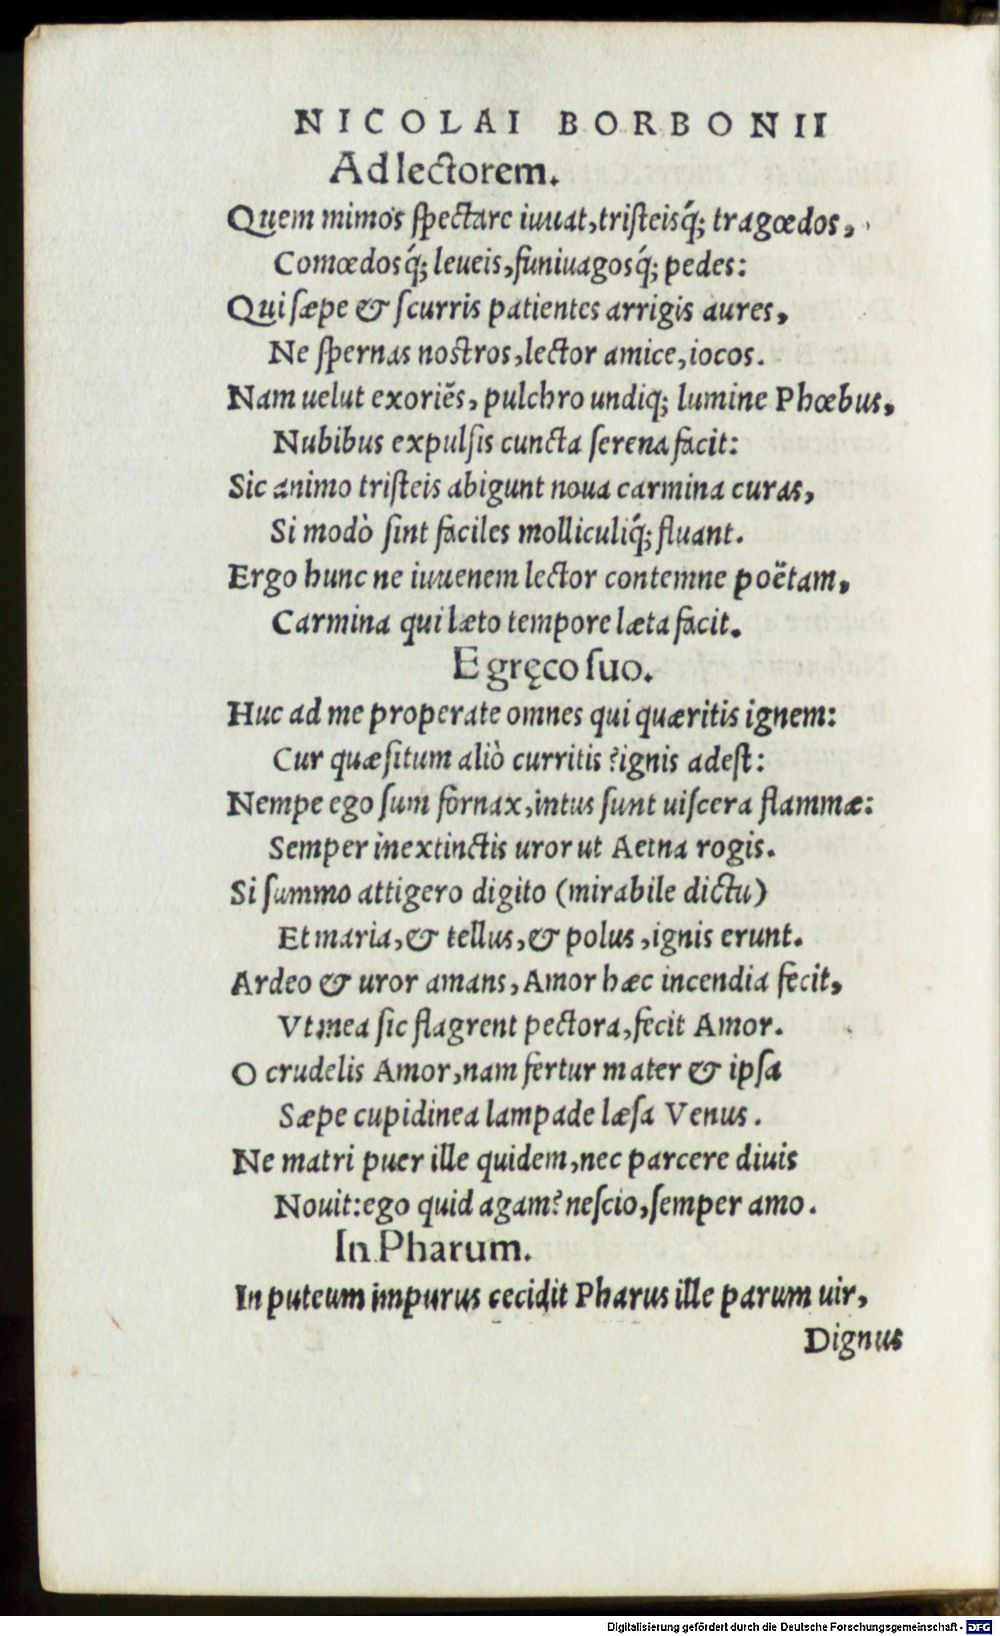 NICOLAI BORBONII
Ad lectorem.
Quem mimos spectare iuuat, tristeisq́; tragœdos,
Comœdosq́; leueis, funiuagosq́; pedes:
Qui sæpe & scurris patientes arrigis aures,
Ne spernas nostros, lector amice, iocos.
Nam uelut exoriẽs, pulchro undiq; lumine Phœbus,
Nubibus expulsis cuncta serena facit:
Sic animo tristeis abigunt noua carmina curas,
Si modò sint faciles molliculiq́; fluant.
Ergo hunc ne iuuenem lector contemne poëtam,
Carmina qui læto tempore læta facit.
E gręco suo.
Huc ad me properate omnes qui quæritis ignem:
Cur quæsitum aliò curritis? ignis adest:
Nempe ego sum fornax, intus sunt uiscera flammæ:
Semper inextinctis uror ut Aetna rogis.
Si summo attigero digito (mirabile dictu)
Et maria, & tellus, & polus, ignis erunt.
Ardeo & uror amans, Amor hæc incendia fecit,
Vt mea sic flagrent pectora, fecit Amor.
O crudelis Amor, nam fertur mater & ipsa
Sæpe cupidinea lampade læsa Venus.
Ne matri puer ille quidem, nec parcere diuis
Nouit: ego quid agam? nescio, semper amo.
In Pharum.
In puteum impurus cecidit Pharus ille parum uir,
Dignus
Digitalisierung gefördert durch die Deutsche Forschungsgemeinschaft - DFG